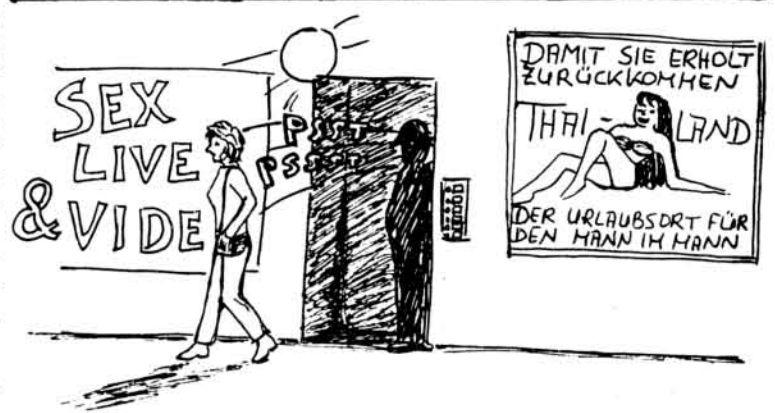 SEX
LIVE
& VIDE
PSST
PSSTT
DAMIT SIE ERHOLT
ZURÜCKKOMMEN
THAI-LAND
DER URLAUBSORT FÜR
DEN MANN IM MANN